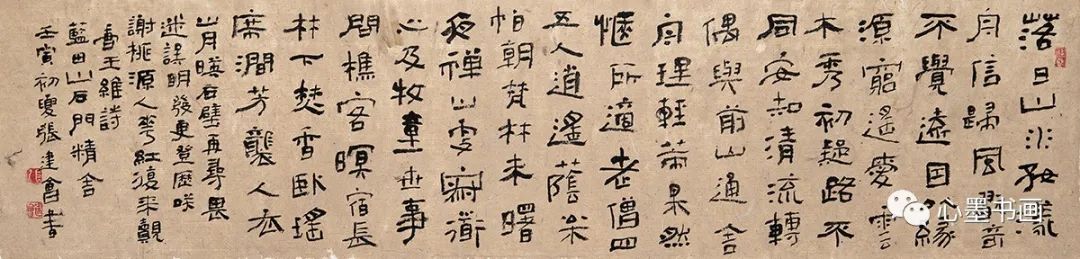 落日山水好漾
舟信歸風翫奇
不覺遠因以緣
源窮遙愛雲
木秀初疑路不
同安知清流轉
偶與前山通舍
舟理輕策果然
愜所適老僧四
五人逍遙蔭松
柏朝梵林未曙
夜禪山更寂道
心及牧童世事
問樵客暝宿長
林下焚香臥瑤
席澗芳襲人衣
山月暎石壁再尋畏
迷誤明發更登歷咲
謝桃源人華紅復來覿
書王維詩
藍田山石門精舍
壬寅初夏張建會書
心墨书画